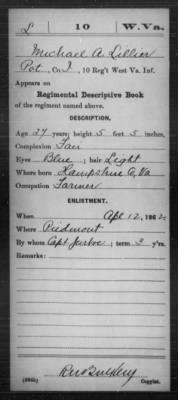 L | 10 | W. Va.
Michael A. Lillier
Pvt., Co. I, 10 Reg't West Va. Inf.
Appears on
Regimental Descriptive Book
of the regiment named above.
DESCRIPTION.
Age 27 years; height 5 feet 5 inches.
Complexion Fair
Eyes Blue; hair Light
Where born Hampshire Co, Va
Occupation Farmer
ENLISTMENT.
When Apl 12, 1862.
Where Piedmont
By whom Capt Jarboe; term 3 y'rs.
Remarks:
Copyist.